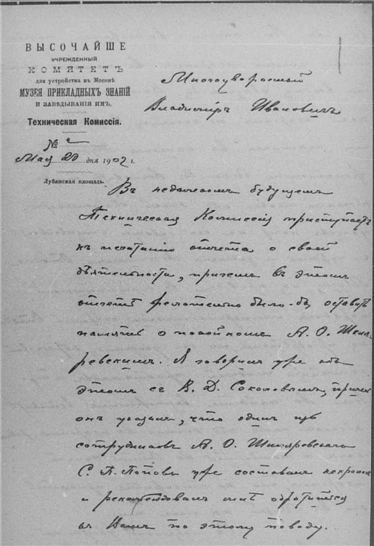 ВЫСОЧАЙШЕ
УЧРЕЖДЕННЫЙ
КОМИТЕТЪ
для устройства въ Москвѣ
МУЗЕЯ ПРИКЛАДНЫХЪ ЗНАНІЙ
И ЗАВѢДЫВАНІЯ ИМЪ.
Техническая Комиссія.
№
Мая 20 дня 1902 г.
Лубянская площадь.
Многоуважаемый
Владиміръ Ивановичъ
Въ недалекомъ будущемъ
Техническая Комиссія приступаетъ
къ печатанію отчета о своей
дѣятельности, причемъ въ этомъ
отчетѣ желательно было-бы оставить
память о покойномъ А. О. Шкля-
ревскимъ. Я говорилъ уже объ
этомъ съ В. Д. Соколовымъ, причемъ
онъ указалъ, что одинъ изъ
сотрудниковъ А. О. Шкляревскаго
С. П. Поповъ уже составилъ некрологъ
и рекомендовалъ мнѣ обратиться
къ Вамъ по этому поводу.